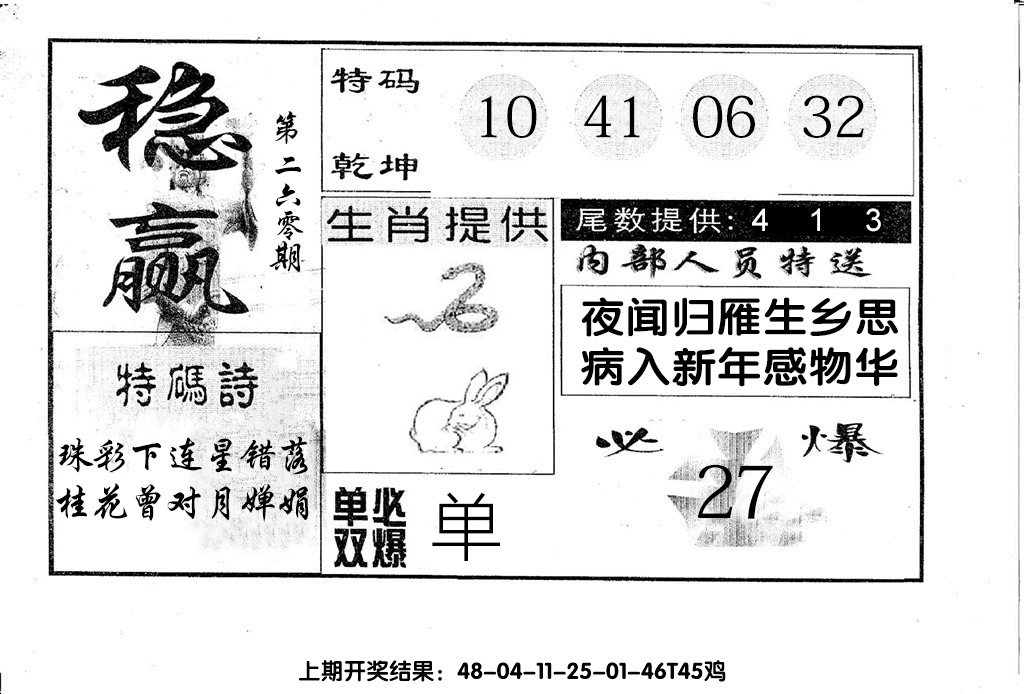 稳赢
第二六零期
特码
乾坤
10 41 06 32
生肖提供
尾数提供: 4 1 3
内部人员特送
夜闻归雁生乡思
病入新年感物华
特碼詩
珠彩下连星错落
桂花曾对月婵娟
必爆
27
单双必爆
单
上期开奖结果：48-04-11-25-01-46T45鸡